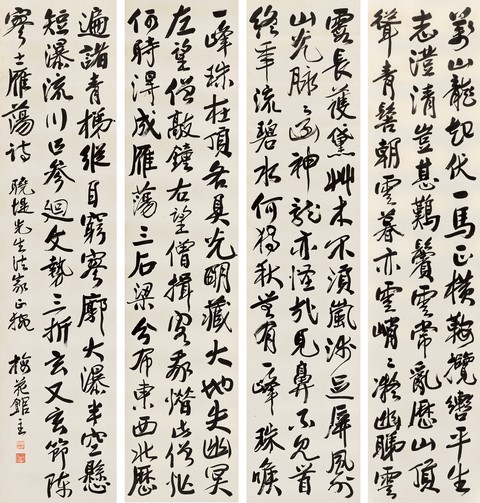 万山龍起伏一馬正橫鞍攬轡平生
志澄清豈甚難鬢雲常亂歷山頂
聳青髻朝雲暮亦雲峭々凝幽睇雲
霞長護黛艸木不須嵐淺屏風
山光脉通神龍亦怪哉見鼻不見首
終年流碧水何獨秋有一峰珠喉
一峰珠在頂各具光明藏大地失幽冥
左望僧敲鐘右望僧揖客我惜此僧忙
何時得成雁蕩三石梁分布東西北歷
遍諸青梯縱目窮寥廓大瀑半空懸
短瀑流川參迴文勢三折玄又玄節陳
寥士雁蕩詩 曉堤先生法家正腕 梅花館主